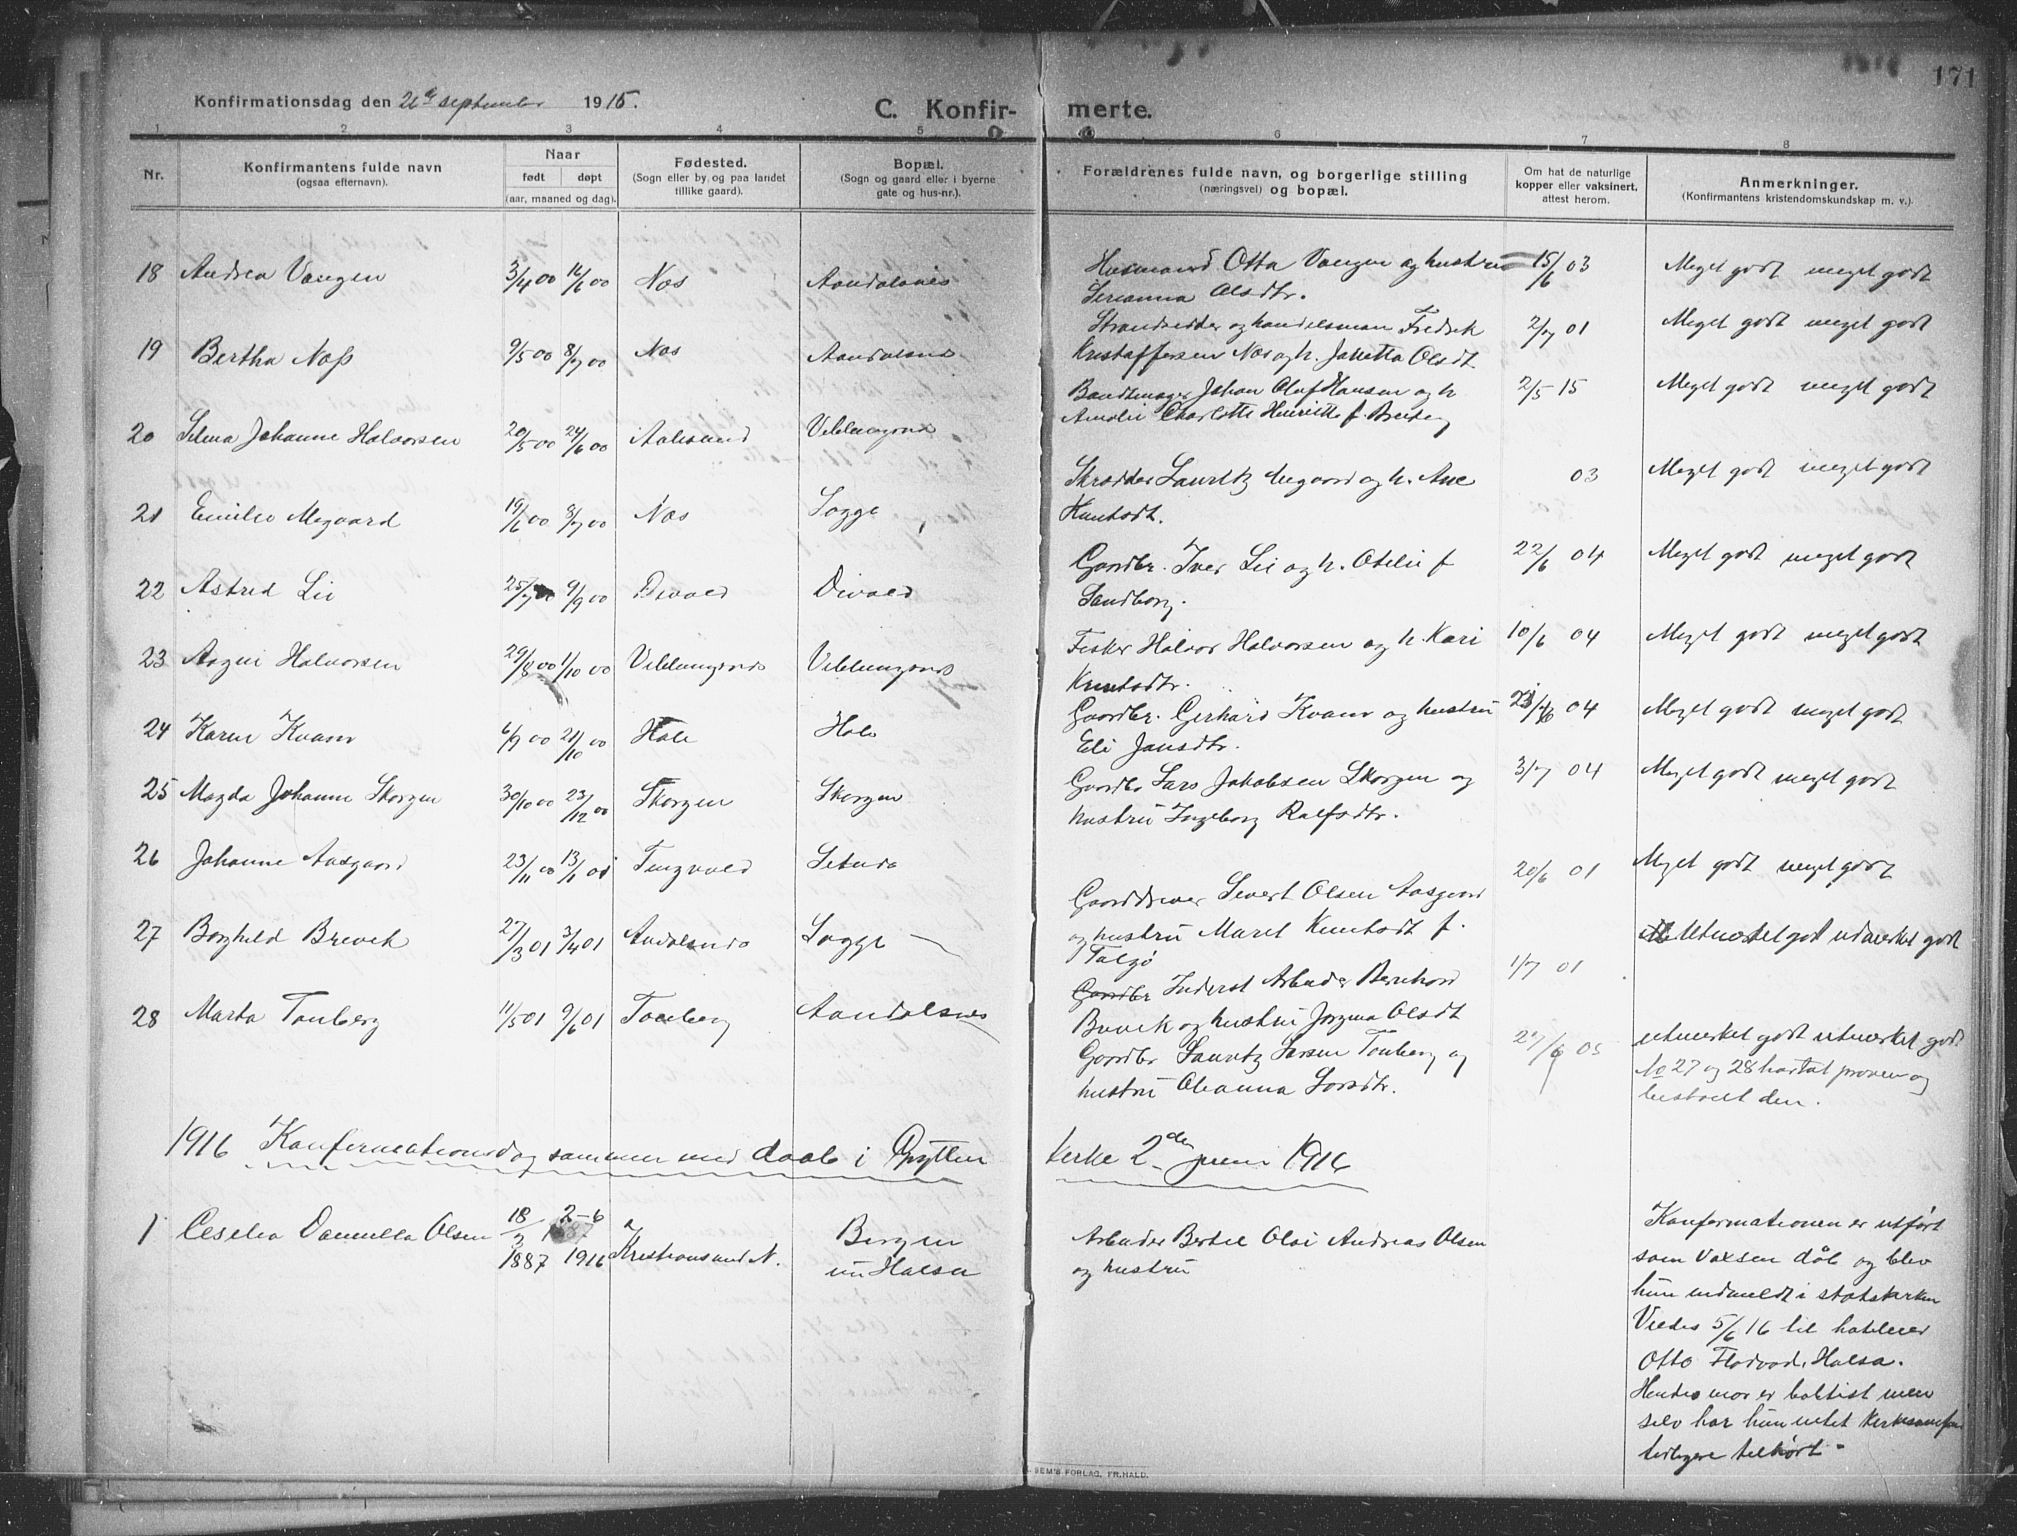 171
Konfirmationsdag den 26de september 1915.
C. Konfir- merte.
1 2 3 4 5 6 7 8
Nr.
Konfirmantens fulde navn
(ogsaa efternavn).
Naar
født døpt
(aar, maaned og dag).
Fødested.
(Sogn eller by og paa landet
tillike gaard).
Bopæl.
(Sogn og gaard eller i byerne
gate og hus-nr.).
Forældrenes fulde navn, og borgerlige stilling
(næringsvei) og bopæl.
Om hat de naturlige
kopper eller vaksinert,
attest herom.
Anmerkninger.
(Konfirmantens kristendomskundskap m. v.).
18 Andrea Vangen 3/4 00 16/6 00 Næs Aandalsnæs
Husmand Otta Vangen og hustru 15/6 03 Meget godt meget godt
Serianna Olsdtr.
19 Bertha Næss 9/5 00 8/7 00 Næs Aandalsnæs
Strandsidder og handelsman Fredrik 2/7 01 Meget godt meget godt
Kristaffersen Næs og h. Jahetta Olsdt
20 Selma Johanne Halvorsen 20/5 00 24/6 00 Aalesund Veblungsnæs
Bundtmager Johan Oluf Hansen og h 2/5 15 Meget godt meget godt
Amalie Charlotte Henriette f.
21 Emilie Megaard 19/6 00 8/7 00 Næs Sogge
Skrædder Lauritz Megaard og h. Ane 03 Meget godt meget godt
Knutsdt.
22 Astrid Lii 25/7 00 9/9 00 Devold Devold
Gaardbr. Iver Lii og h. Otelie f 22/6 04 Meget godt meget godt
Sandborg.
23 Aagni Halvorsen 29/8 00 1/10 00 Veblungsnæs Veblungsnæs
Fisker Halvor Halvorsen og h. Kari 10/6 04 Meget godt meget godt
Knutsdtr.
24 Karen Kvam 6/9 00 21/10 00 Hole Hole
Gaardbr. Gerhard Kvam og hustru 04 Meget godt meget godt
Eli Jansdtr.
25 Magda Johanne Skorgen 30/10 00 23/12 00 Skorgen Skorgen
Gaardbr Lars Jakobsen Skorgen og 3/7 04 Meget godt meget godt
hustru Ingeborg Ralfsdtr.
26 Johanne Aasgaard 23/11 00 13/1 01 Tingvold Setnes
Gaarddriver Sivert Olsen Aasgaard 20/6 01 Meget godt meget godt
og hustru Maret Knutsdt f.
Talgø
27 Borghild Brevik 27/3 01 3/4 01 Andalsnæs Sogge
Gaardbr Inderst Arbeider Bernhard 1/7 01 Utmerket godt utmerket godt
Brevik og hustru Jørgina Olsdt
28 Marta Tomberg 11/5 01 9/6 01 Tomberg Aandalsnes
Gaardbr Lauritz Larsen Tomberg og 27/6 05 utmerket godt utmerket godt
hustru Oleanna Larsdtr.
No 27 og 28 har tat prøven og
bestaaet den.
1916 Konfirmationsdag sammen med daab i Grytten kirke 2den juni 1916
1 Ceselia Danielle Olsen 18/2 1887 2-6 1916 Kristiansund N. Bergen
nu Halsa
Arbeider Bertel Olai Andreas Olsen
og hustru
Konfirmationen er utført
som voksen dåb og blev
hun indmeldt i statskirken
Viedes 5/6 16 til hoteleier
Otto Fladvad, Halsa.
Hendes mor er baptist men
selv har hun intet kirkesamfun
tidligere tilhørt.
SEM'S FORLAG, FR.HALD.